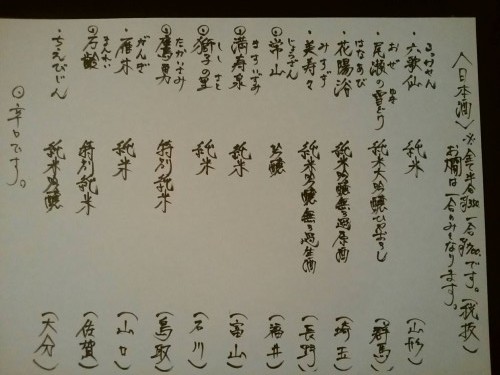 〈日本酒〉※全半合350 一合700です。(税抜)
お燗は一合のみとなります。
ろっかせん
・六歌仙 純米 (山形)
おぜ ゆき
・尾瀬の雪どけ 純米大吟醸ひやおろし (群馬)
はなあび
・花陽浴 純米吟醸無ろ過原酒 (埼玉)
みすず
・美寿々 純米吟醸無ろ過生酒 (長野)
じょうざん
◎常山 吟醸 (福井)
ますいずみ
◎満寿泉 純米 (富山)
しし さと
◎獅子の里 純米 (石川)
たかいさみ
◎鷹勇 特別純米 (鳥取)
がんぎ
・雁木 純米 (山口)
まんれい
◎万齢 特別純米 (佐賀)
・ちえびじん 純米吟醸 (大分)
◎辛口です。